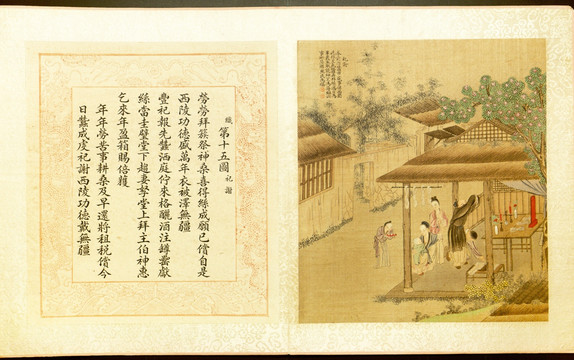 織 第十五圖 祀謝
勞勞拜簇祭神桑喜得絲成願已償自是
西陵功德盛萬年衣被澤無疆
豐祀報先蠶洒庭佇來格醊酒注罇罍獻
絲當圭璧堂下趨妻孥堂上拜主伯神惠
乞來年盈箱賜倍穫
年年勞苦事耕桑及早還將租稅償今
日蠶成虔祀謝西陵功德戴無疆
祀謝